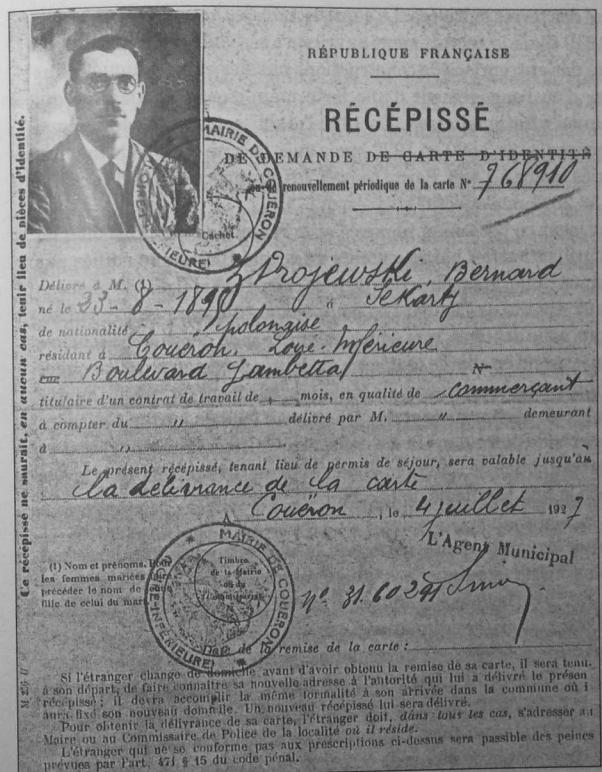 RÉPUBLIQUE FRANÇAISE
RÉCÉPISSÉ
DE DEMANDE DE CARTE D'IDENTITÉ
renouvellement périodique de la carte N° 768910
MAIRIE DE COUËRON
(LOIRE-INFÉRIEURE)
Cachet.
Délivré à M. (1) Projewski, Bernard
né le 23-8-189 à Sekarty
de nationalité polonaise
résidant à Couëron. Loire-Inférieure
rue Boulevard Gambetta N°
titulaire d'un contrat de travail de mois, en qualité de commerçant
à compter du " délivré par M. " demeurant
à "
Le présent récépissé, tenant lieu de permis de séjour, sera valable jusqu'au
la délivrance de la carte
A Couëron, le 4 juillet 1927
L'Agent Municipal
(1) Nom et prénoms. Pour
les femmes mariées faire
précéder le nom de jeune
fille de celui du mari.
MAIRIE DE COUËRON
(LOIRE-INFÉRIEURE)
Timbre
de la Mairie
ou du
Commissariat
N° 31.60291
Date de la remise de la carte :
Si l'étranger change de domicile avant d'avoir obtenu la remise de sa carte, il sera tenu,
à son départ, de faire connaître sa nouvelle adresse à l'autorité qui lui a délivré le présen
récépissé ; il devra accomplir la même formalité à son arrivée dans la commune où i
aura fixé son nouveau domicile. Un nouveau récépissé lui sera délivré.
Pour obtenir la délivrance de sa carte, l'étranger doit, dans tous les cas, s'adresser au
Maire ou au Commissaire de Police de la localité où il réside.
L'étranger qui ne se conforme pas aux prescriptions ci-dessus sera passible des peines
prévues par l'art. 471 § 15 du code pénal.
Ce récépissé ne saurait, en aucun cas, tenir lieu de pièces d'identité.